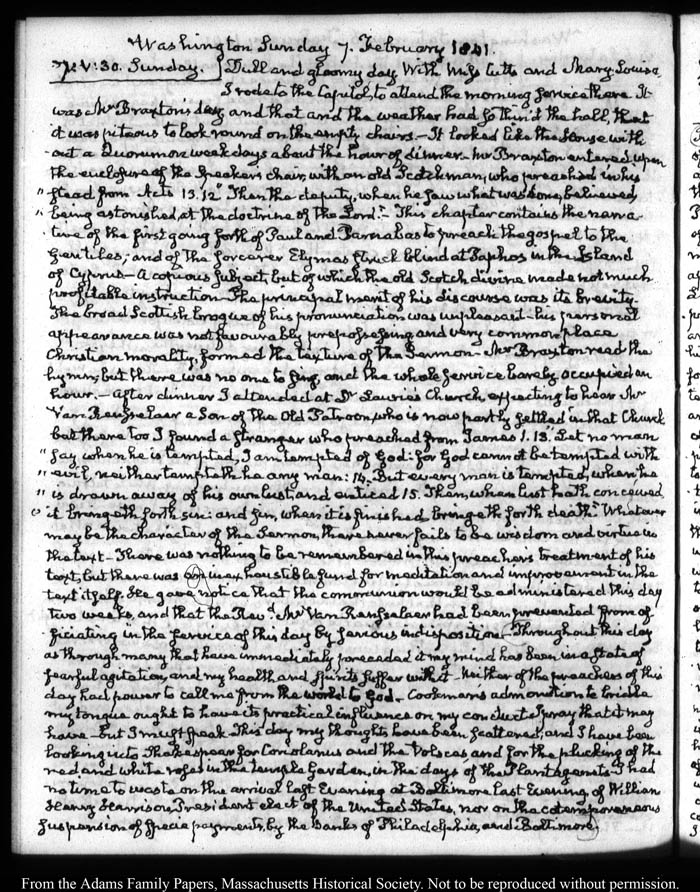 Washington Sunday 7. February 1841.
7. V:30. Sunday. Dull and gloomy day. With Mrs Cutts and Mary Louisa
I rode to the Capitol, to attend the morning service there. It
was Mr Braxton's day, and that and the weather had so thin'd the hall, that
it was piteous to look round on the empty chairs. – It looked like the House with
out a Quorum on week days about the hour of dinner. Mr Braxton entered upon
the enclosure of the Speakers chair, with an old Scotchman, who preached in his
" stead from Acts 13.12 "Then the deputy, when he saw what was done, believed,
" being astonished at the doctrine of the Lord." – This chapter contains the narra
tive of the first going forth of Paul and Barnabas to preach the gospel to the
Gentiles; and of the sorcerer Elymas struck blind at Paphos in the Island
of Cyprus – A copious subject, but of which the old Scotch divine made not much
profitable instruction – The principal merit of his discourse was its brevity.
The broad Scottish brogue of his pronunciation was unpleasant – his personal
appearance was not favourably prepossessing and very common place
Christian morality, formed the texture of the Sermon – Mr Braxton read the
hymn, but there was no one to sing, and the whole service barely occupied an
hour. – After dinner I attended at Dr Laurie's Church, expecting to hear Mr
Van Rensselaer a Son of the Old Patroon, who is now partly settled in that Church
but there too I found a stranger who preached from James 1.13. "Let no man
" say when he is tempted, I am tempted of God: for God cannot be tempted with
" evil, neither tempteth he any man: 14. But every man is tempted, when he
" is drawn away of his own lust, and enticed 15. Then, when lust hath conceived
" it bringeth forth sin: and sin, when it is finished bringeth forth death." Whatever
may be the character of the Sermon, there never fails to be wisdom and virtue in
the text – There was nothing to be remembered in this preacher's treatment of his
text, but there was an inexhaustible fund for meditation and improvement in the
text itself. He gave notice that the communion would be administered this day
two weeks, and that the Revd. Mr Van Rensselaer had been prevented from of
ficiating in the service of this day by serious indisposition – Throughout this day
as through many that have immediately preceded it my mind has been in a state of
fearful agitation, and my health and spirits suffer with it – Neither of the preachers of this
day had power to call me from the world to God – Cookman's admonition to bridle
my tongue ought to have its practical influence on my conduct I pray that it may
have – but I must speak This day my thoughts have been scattered, and I have been
looking into Shakespear for Coriolanus and the Volsces and for the plucking of the
red and white roses in the temple Garden, in the days of the Plantagenets – I had
no time to waste on the arrival last Evening at Baltimore last Evening of William
Henry Harrison, President elect of the United States, nor on the cotemporaneous
suspension of specie payments, by the banks of Philadelphia, and Baltimore.
From the Adams Family Papers, Massachusetts Historical Society. Not to be reproduced without permission.